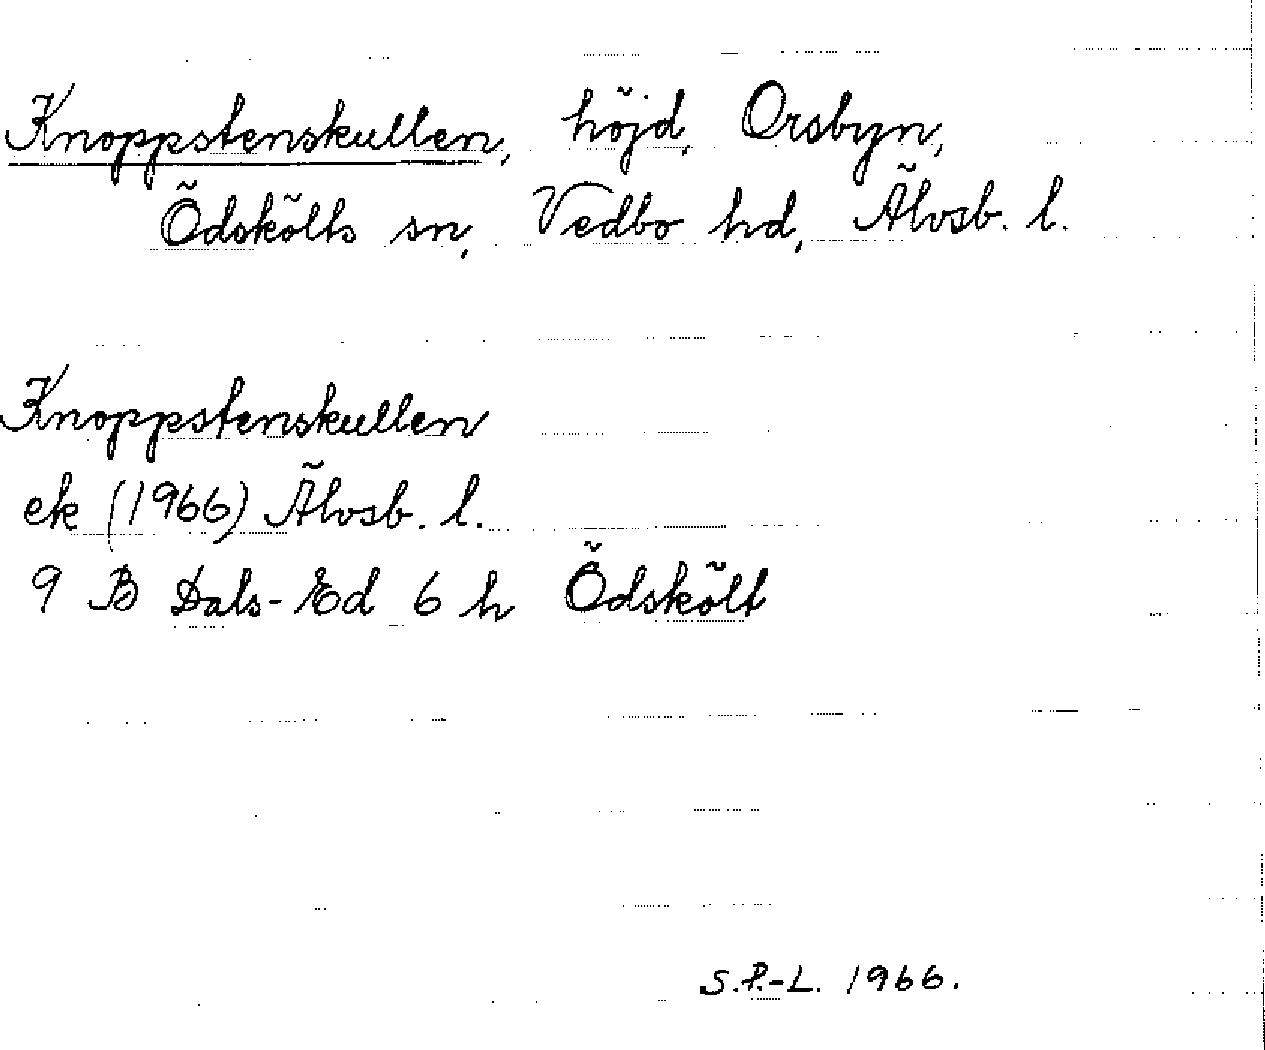 Knoppstenskullen, höjd, Orsbyn,
Ödskölts sn, Vedbo hd, Älvsb. l.
Knoppstenskullen
ek (1966) Älvsb. l.
9 B Dals-Ed 6 h Ödskölt
S.P.-L. 1966.